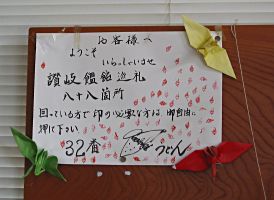 お客様へ
ようこそ
いらっしゃいませ
讃岐饂飩巡礼
八十八箇所
回っている方で印の必要な方は、御自由に
押に下さい
32番
うどん